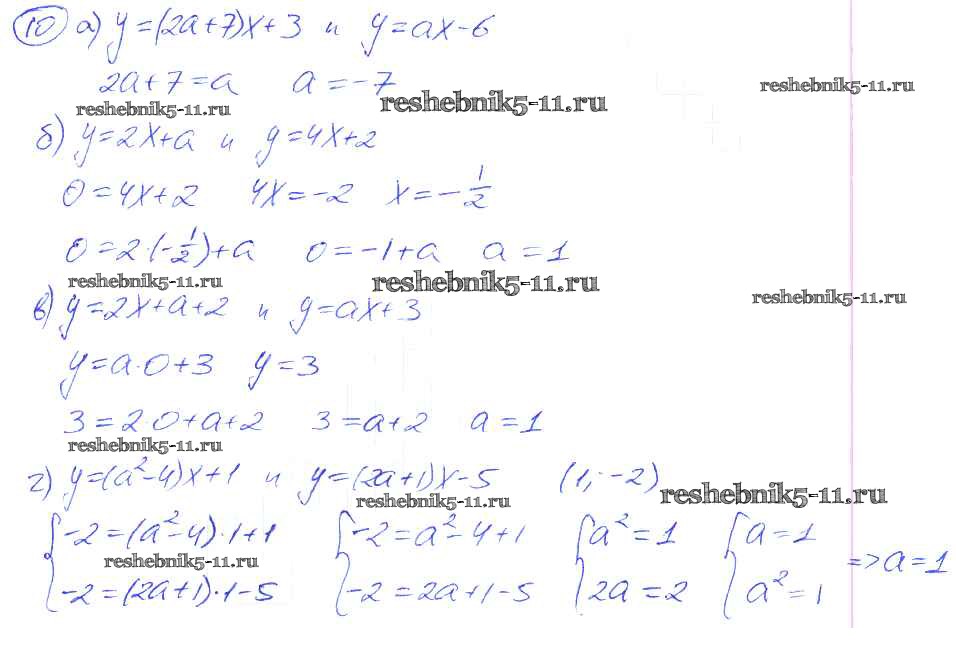 10 а) y=(2a+7)x+3 и y=ax-6
2a+7=a a=-7
reshebnik5-11.ru reshebnik5-11.ru reshebnik5-11.ru
б) y=2x+a и y=4x+2
0=4x+2 4x=-2 x=-1/2
0=2·(-1/2)+a 0=-1+a a=1
reshebnik5-11.ru reshebnik5-11.ru reshebnik5-11.ru
в) y=2x+a+2 и y=ax+3
y=a·0+3 y=3
3=2·0+a+2 3=a+2 a=1
reshebnik5-11.ru
г) y=(a²-4)x+1 и y=(2a+1)x-5 (1;-2)
reshebnik5-11.ru reshebnik5-11.ru
{-2=(a²-4)·1+1 {-2=a²-4+1 {a²=1 {a=1
reshebnik5-11.ru =>a=1
-2=(2a+1)·1-5 -2=2a+1-5 2a=2 a²=1